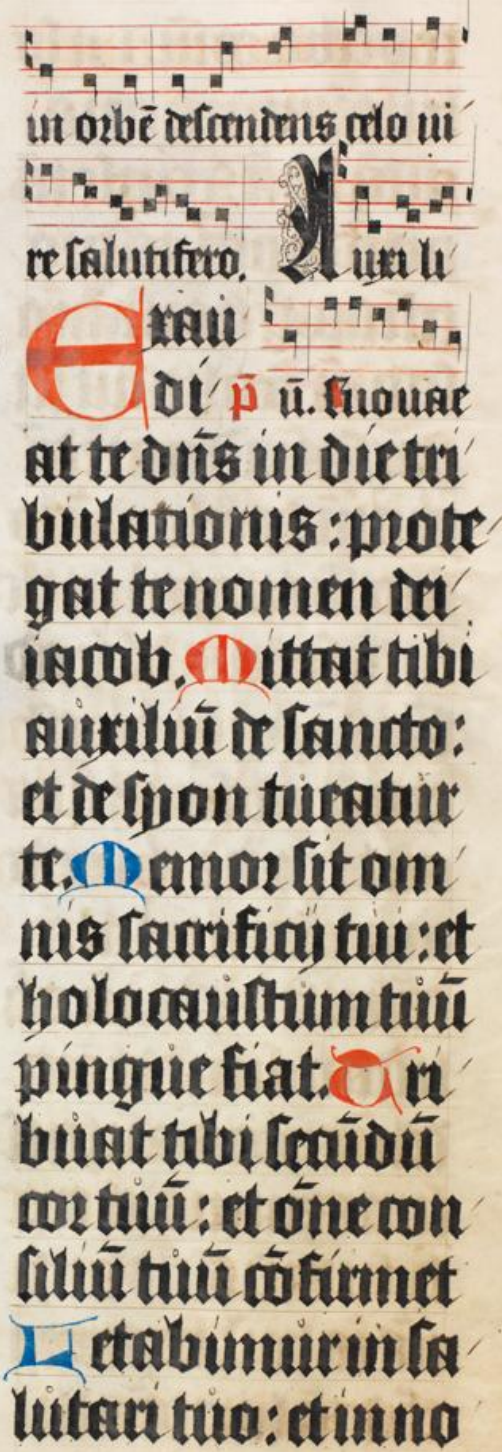 in orbē descendens celo iu
re salutifero. Auxili
Exau
di p̄ ū. Euouae
at te dn̄s in die tri
bulationis : prote
gat te nomen dei
iacob. Mittat tibi
auxiliū de sancto :
et de syon tueatur
te. Memor sit om
nis sacrificij tui : et
holocaustum tuū
pingue fiat. Tri
buat tibi secūdū
cor tuū : et ōne con
siliū tuū cōfirmet
Letabimur in sa
lutari tuo : et in no